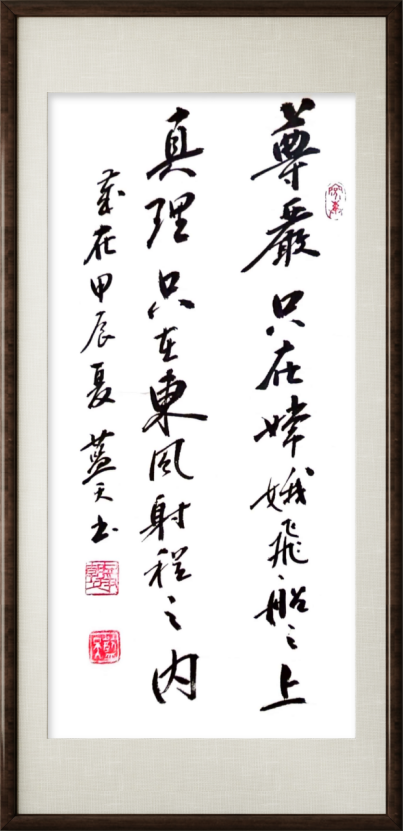 尊嚴只在嫦娥飛船之上
真理只在東風射程之内
歲在甲辰夏 藍天书